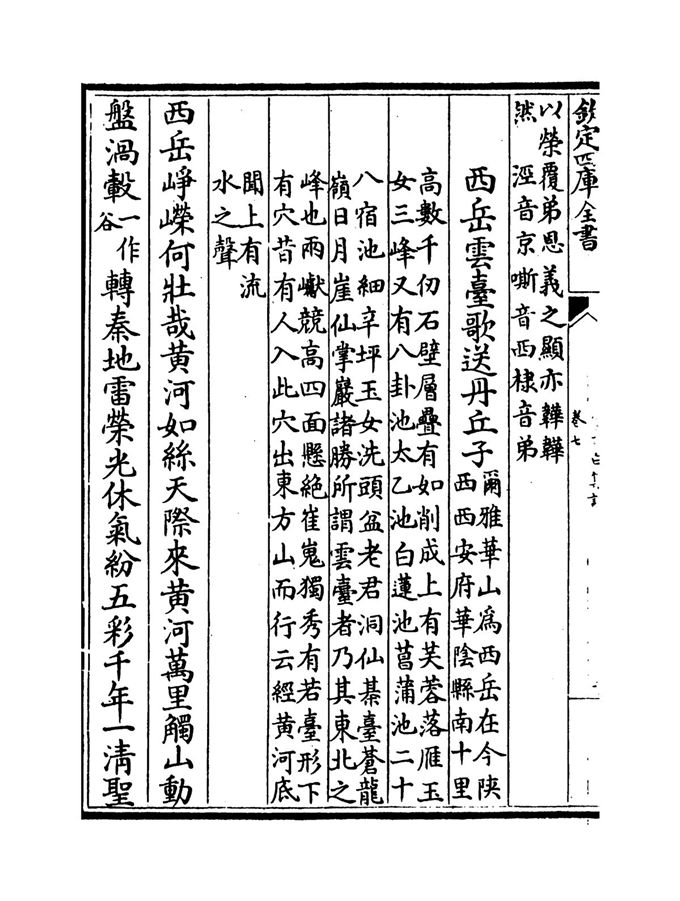 欽定四庫全書
卷七
以榮覆弟恩義之顯亦韡韡
然 涇音京嘶音西棣音弟
西岳雲臺歌送丹丘子 爾雅華山為西岳在今陜
西西安府華陰縣南十里
高數千仞石壁層疊有如削成上有芙蓉落雁玉
女三峰又有八卦池太乙池白蓮池菖蒲池二十
八宿池細辛坪玉女洗頭盆老君洞仙棊臺蒼龍
嶺日月崖仙掌巖諸勝所謂雲臺者乃其東北之
峰也兩巘競高四面懸絶崔嵬獨秀有若臺形下
有穴昔有人入此穴出東方山而行云經黄河底
聞上有流
水之聲
西岳崢嶸何壯哉黄河如絲天際來黄河萬里觸山動
盤渦轂一作谷轉秦地雷榮光休氣紛五彩千年一清聖